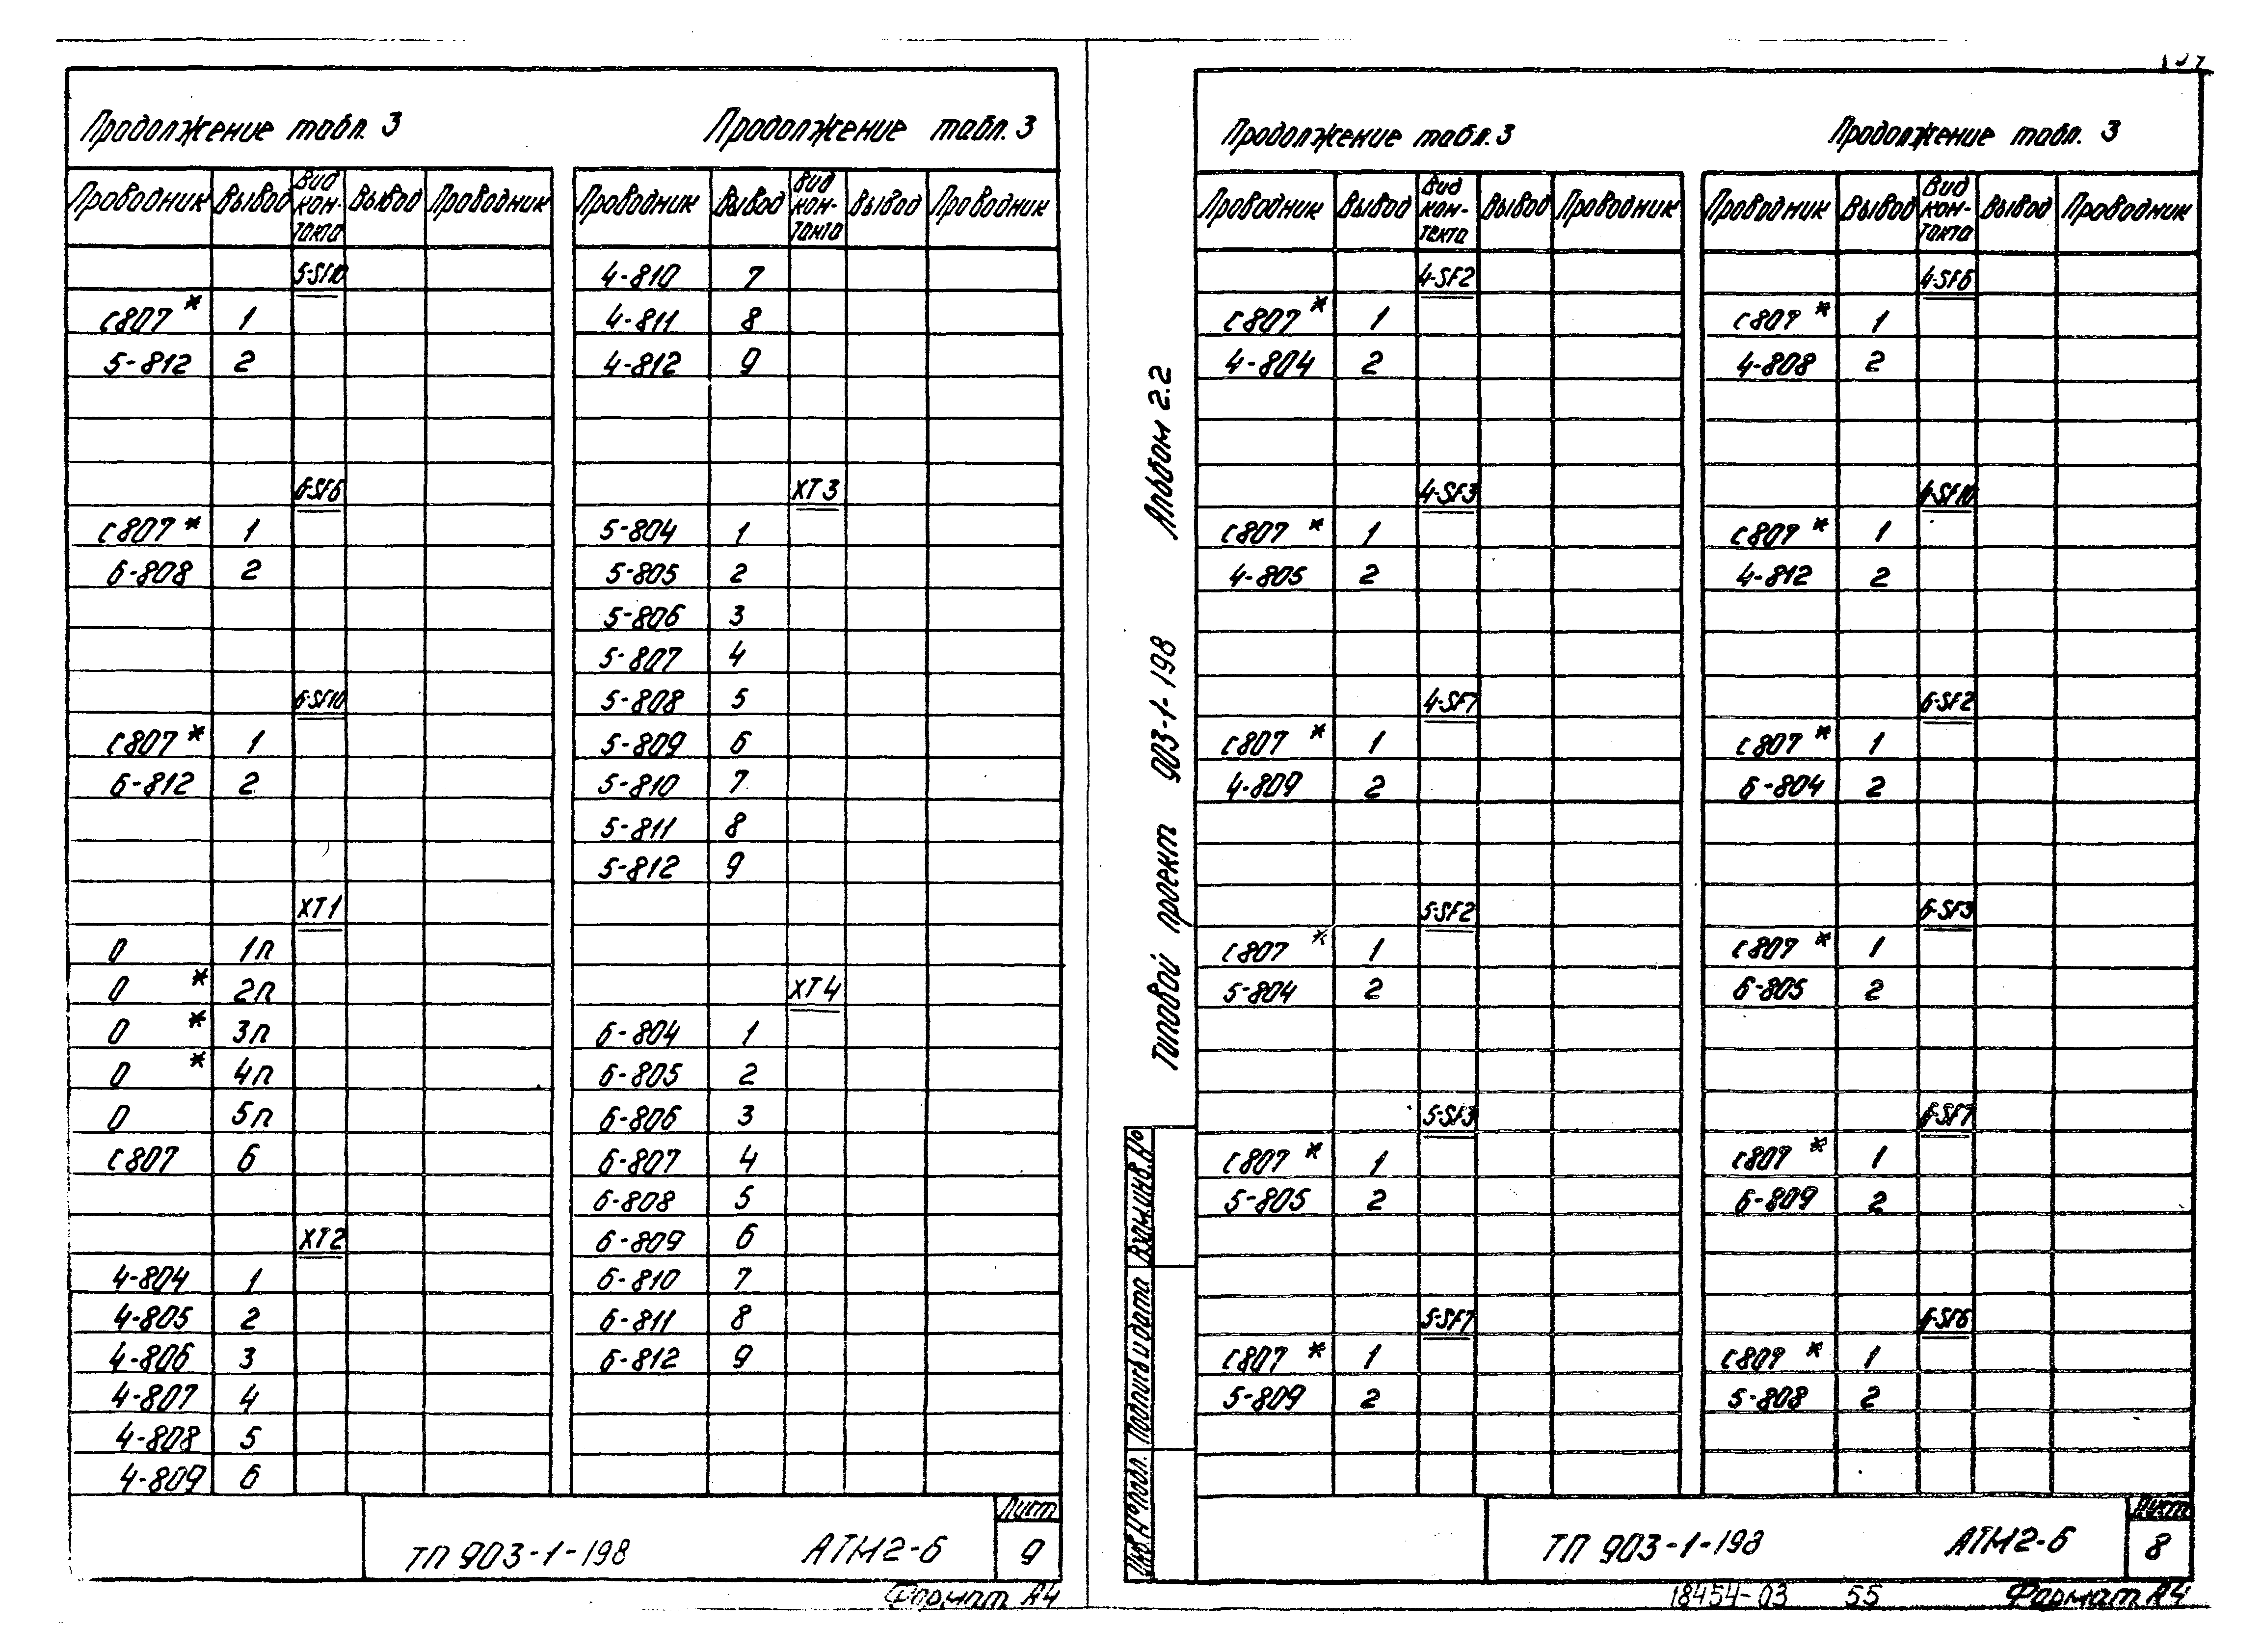 Продолжение табл. 3
Проводник Вывод Вид кон-такта Вывод Проводник
5-SF10
С807 * 1
5-812 2
6-SF6
С807 * 1
6-808 2
6-SF10
С807 * 1
6-812 2
XT1
0 1п
0 * 2п
0 * 3п
0 * 4п
0 5п
С807 6
XT2
4-804 1
4-805 2
4-806 3
4-807 4
4-808 5
4-809 6
Продолжение табл. 3
Проводник Вывод Вид кон-такта Вывод Проводник
4-810 7
4-811 8
4-812 9
XT3
5-804 1
5-805 2
5-806 3
5-807 4
5-808 5
5-809 6
5-810 7
5-811 8
5-812 9
XT4
6-804 1
6-805 2
6-806 3
6-807 4
6-808 5
6-809 6
6-810 7
6-811 8
6-812 9
ТП 903-1-198 АТМ2-6
Лист
9
Формат А4
Альбом 2.2
Типовой проект 903-1-198
Взам.инв.№
Подпись и дата
Инв.№ подл.
Продолжение табл. 3
Проводник Вывод Вид кон-такта Вывод Проводник
4-SF2
С807 * 1
4-804 2
4-SF3
С807 * 1
4-805 2
4-SF7
С807 * 1
4-809 2
5-SF2
С807 * 1
5-804 2
5-SF3
С807 * 1
5-805 2
5-SF7
С807 * 1
5-809 2
Продолжение табл. 3
Проводник Вывод Вид кон-такта Вывод Проводник
4-SF6
С807 * 1
4-808 2
4-SF10
С807 * 1
4-812 2
6-SF2
С807 * 1
6-804 2
6-SF3
С807 * 1
6-805 2
6-SF7
С807 * 1
6-809 2
С807 * 1
5-808 2
ТП 903-1-198 АТМ2-6
Лист
8
18454-03 55 Формат А4